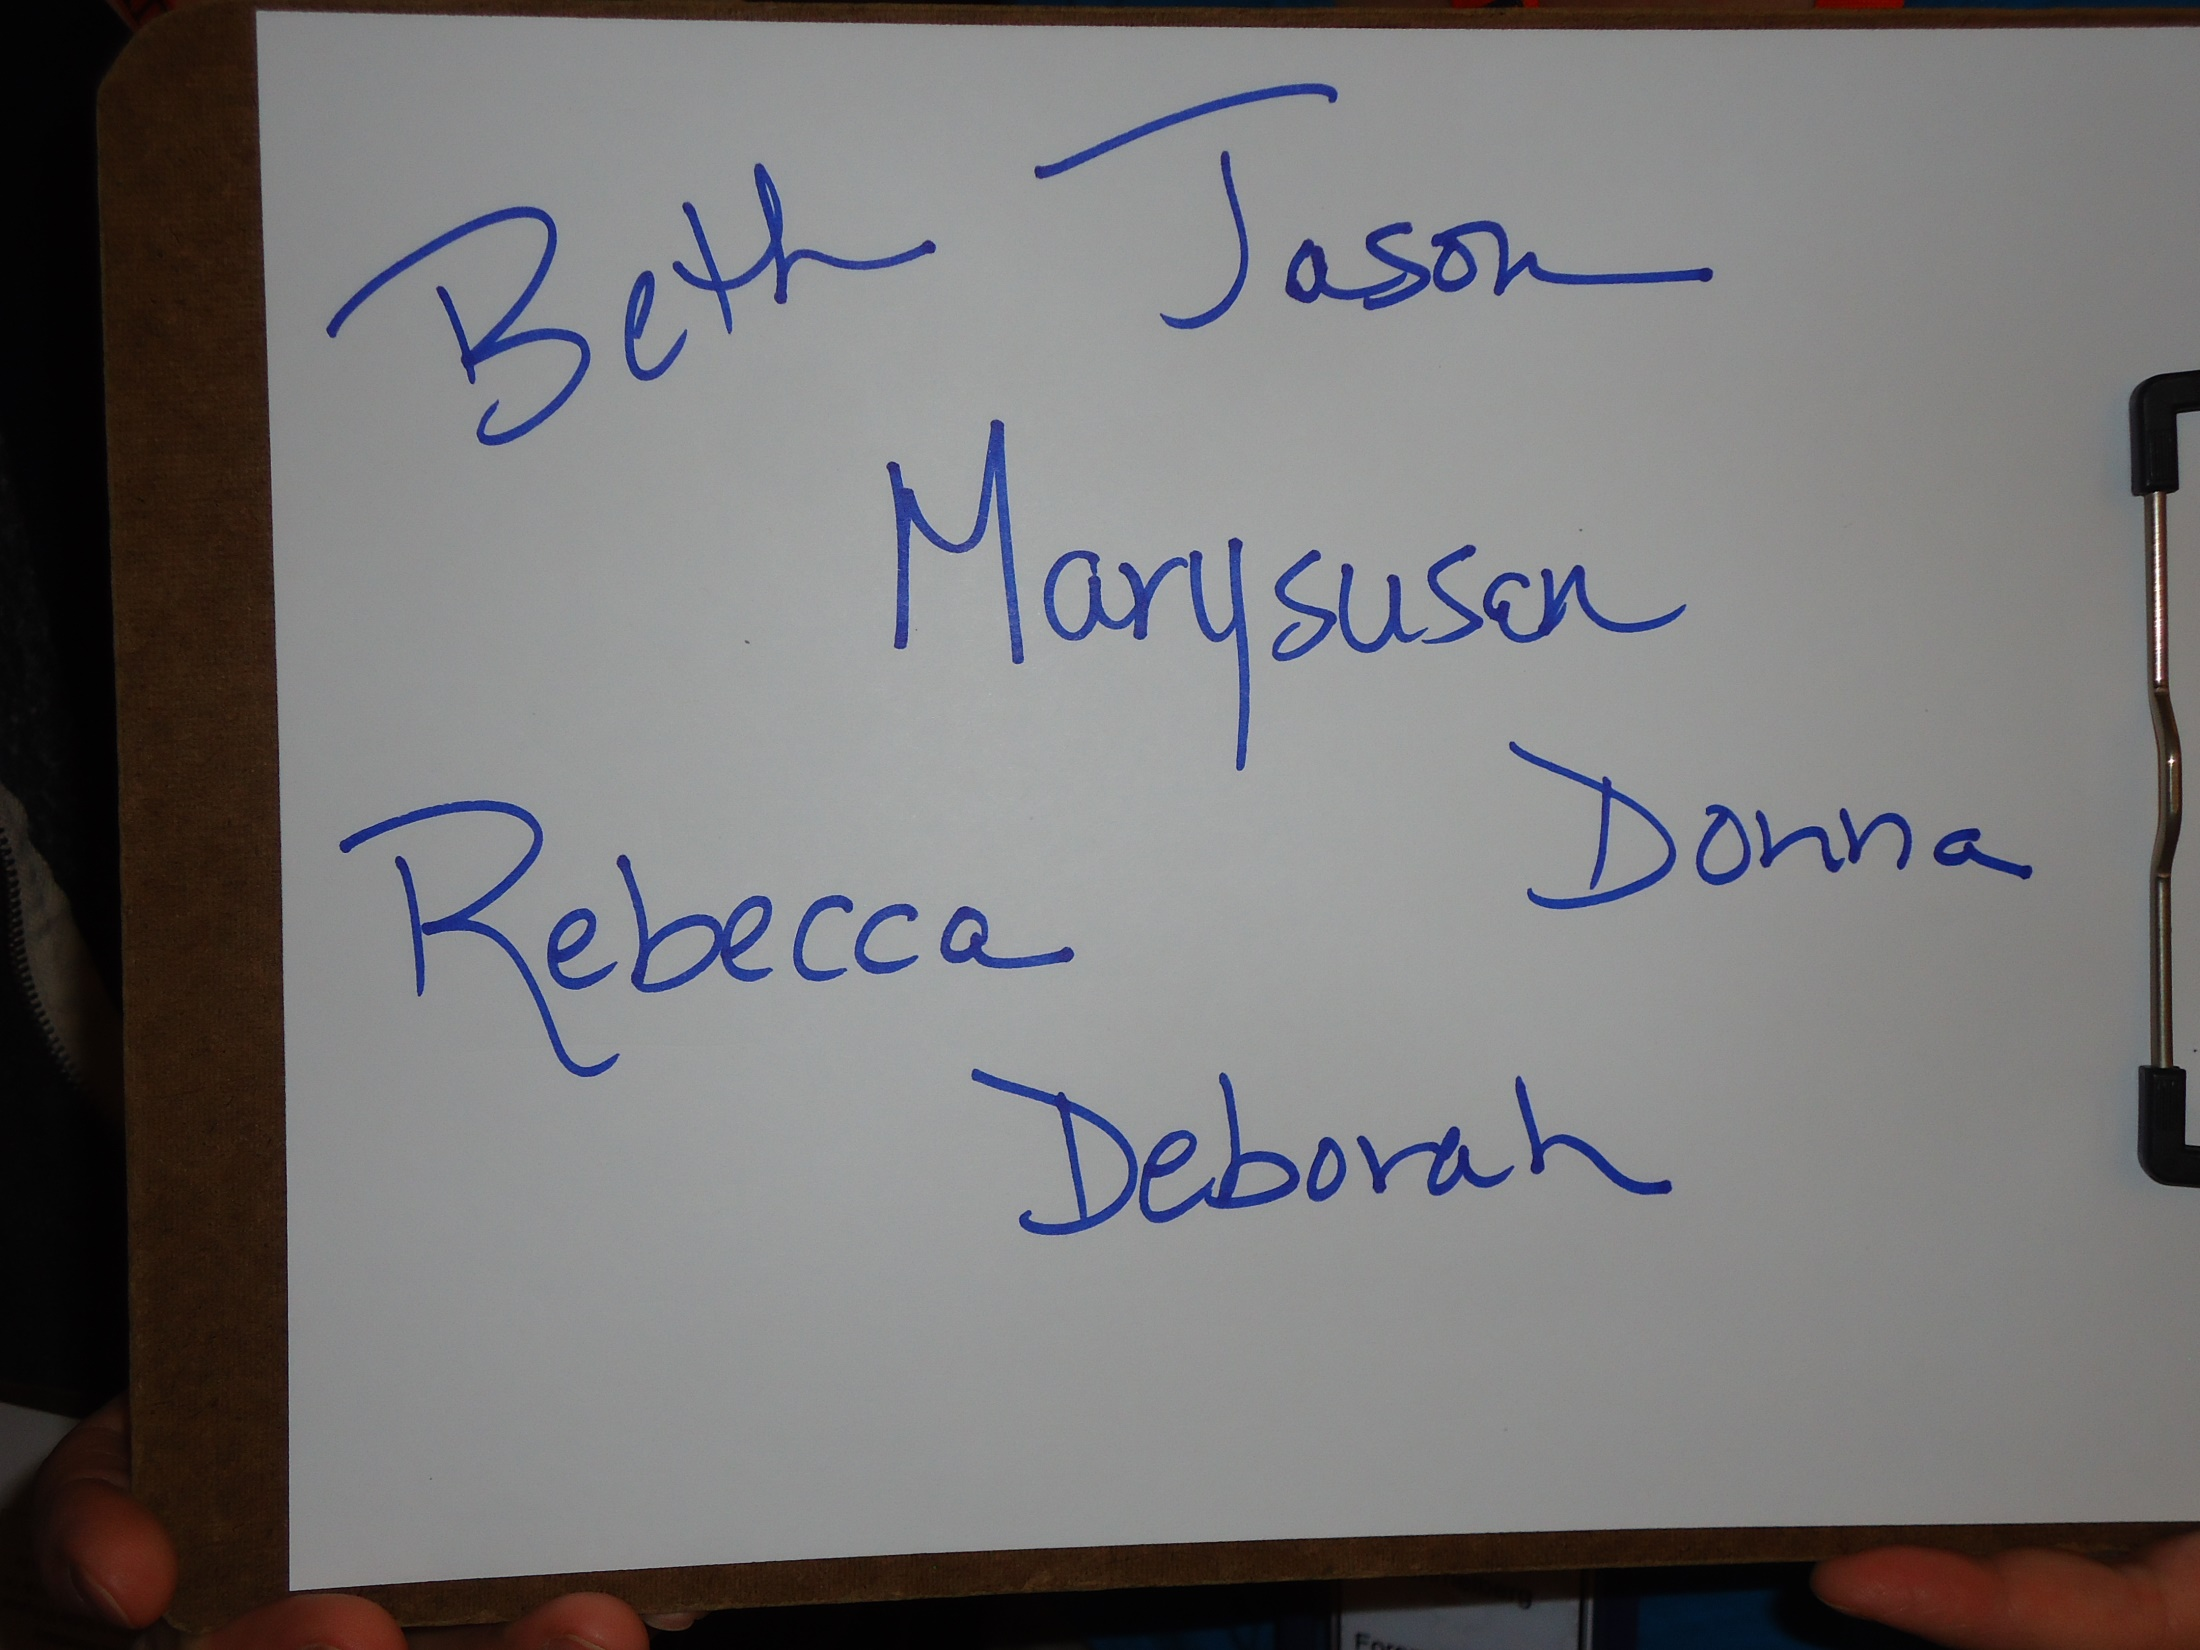 Beth Jason
Marysusan
Donna
Rebecca
Deborah